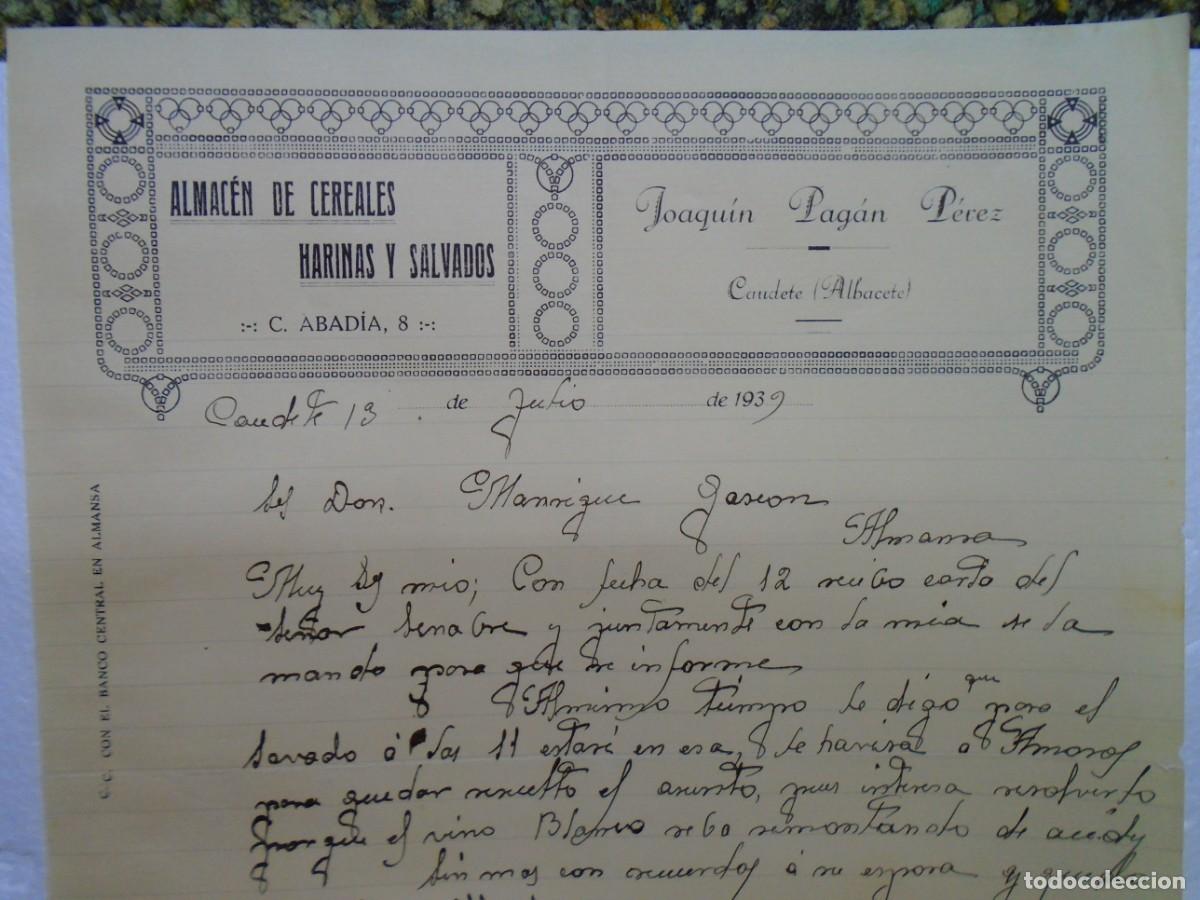 ALMACÉN DE CEREALES
HARINAS Y SALVADOS
:-: C. ABADÍA, 8 :-:
Joaquín Pagán Pérez
Caudete (Albacete)
Caudete 13 de Julio de 1939
C.C. CON EL BANCO CENTRAL EN ALMANSA
Don. Manrique Gascon
Almansa
Muy Sr mio; Con fecha del 12 recibo carta del
señor Senabre y juntamente con la mia se la
mando para que se informe
Almismo tiempo le digo que para el
Savado á las 11 estaré en esa, le havisa a Amoros
para quedar resuelto el asunto, pues interesa resolverlo
porque el vino Blanco se bo remontando de
Sin mas con recuerdos á su esposa y queda
todocoleccion